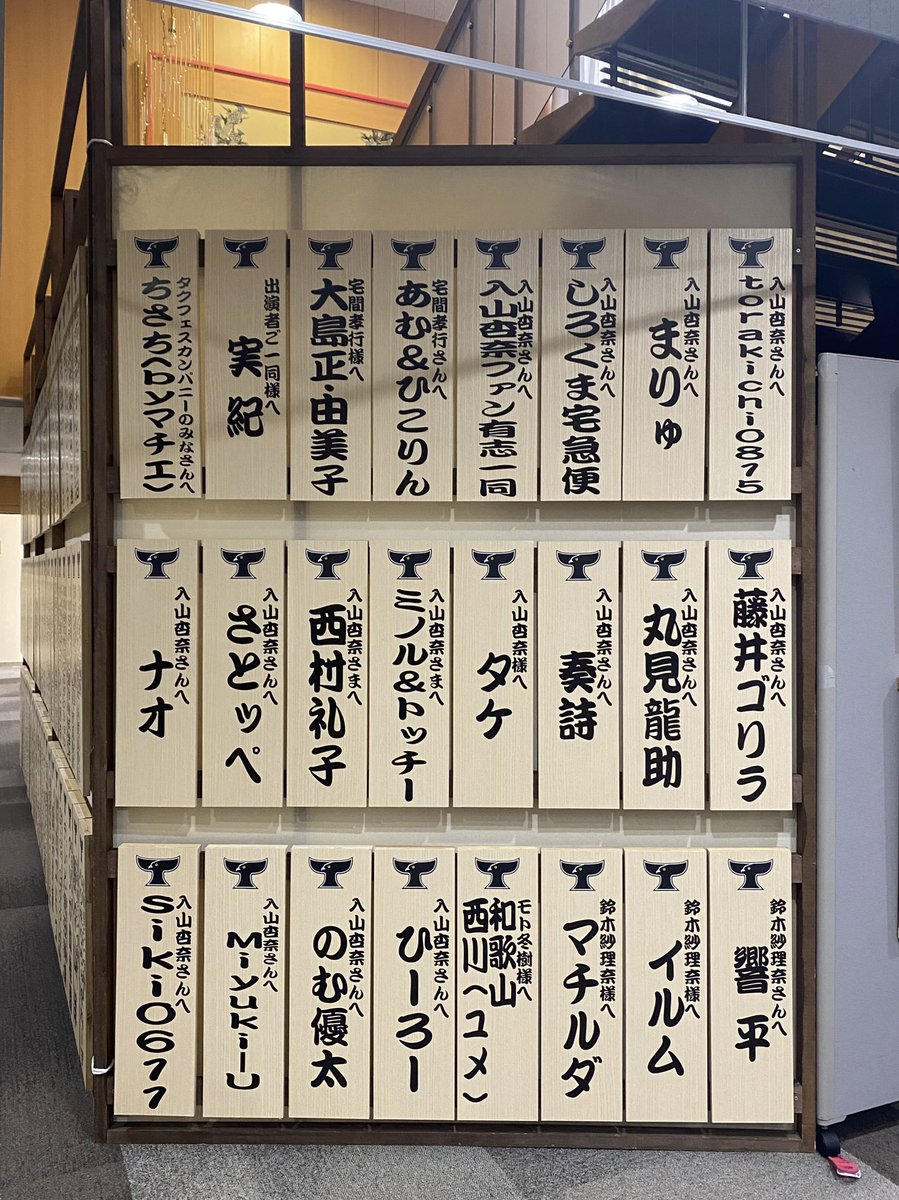 入山杏奈さんへ
torakichi0875
入山杏奈さんへ
まりゅ
入山杏奈さんへ
しろくま宅急便
入山杏奈さんへ
入山杏奈ファン有志一同
宅間孝行さんへ
あむ&ひこりん
宅間孝行様へ
大島正・由美子
出演者ご一同様へ
実紀
タクフェスカンパニーのみなさんへ
入山杏奈さんへ
藤井ゴリラ
入山杏奈さんへ
丸見龍助
入山杏奈さんへ
奏詩
入山杏奈様へ
タケ
入山杏奈さまへ
ミノル&トッチー
入山杏奈さまへ
西村礼子
入山杏奈さんへ
さとッペ
入山杏奈さんへ
ナオ
鈴木紗理奈さんへ
響平
鈴木紗理奈様へ
イルム
鈴木紗理奈様へ
マチルダ
モト冬樹様へ
和歌山
西川(ユメ)
入山杏奈さんへ
ひーろー
入山杏奈さんへ
のむ優太
入山杏奈さんへ
入山杏奈さんへ
Siki0677